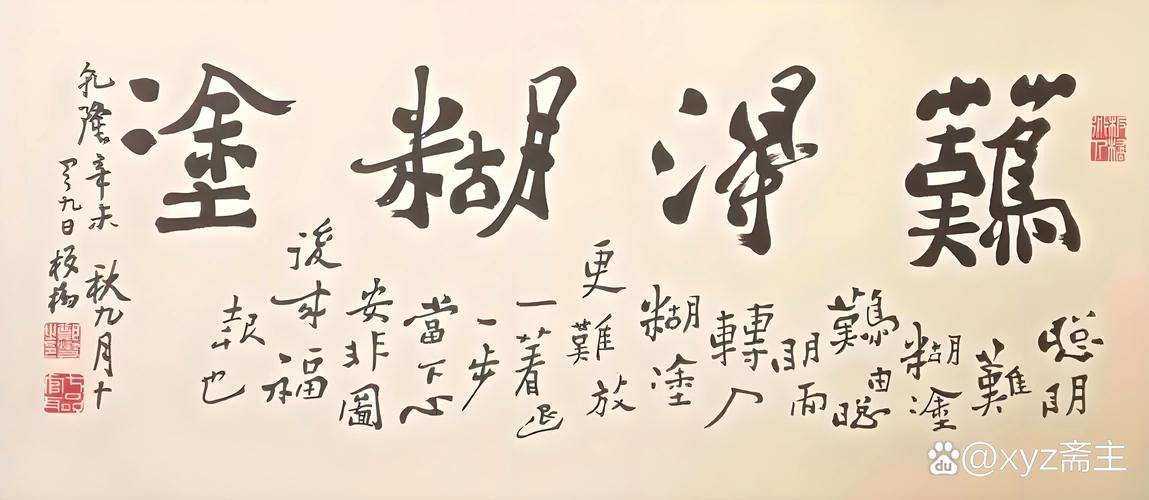 難得糊塗
聰明
難
糊塗
難由聰
明而
轉入
糊塗
更難放
一着退
一步
當下心
安非圖
後来福
報也
乾隆辛未秋九月十
有九日板橋
七品官耳
@xyz斋主